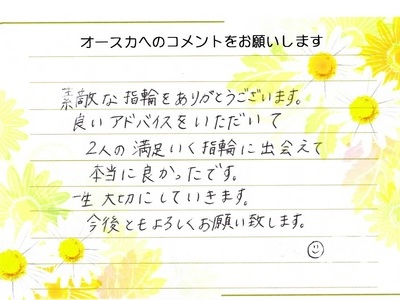 オースカへのコメントをお願いします
素敵な指輪をありがとうございます。
良いアドバイスをいただいて
2人の満足いく指輪に出会えて
本当に良かったです。
一生大切にしていきます。
今後ともよろしくお願い致します。